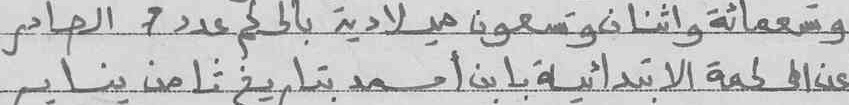 وتسعمائة واثنان وتسعون ميلادية بالحكم عدد 7 الصادر
عن المحكمة الابتدائية بابن أحمد بتاريخ ثامن يناير